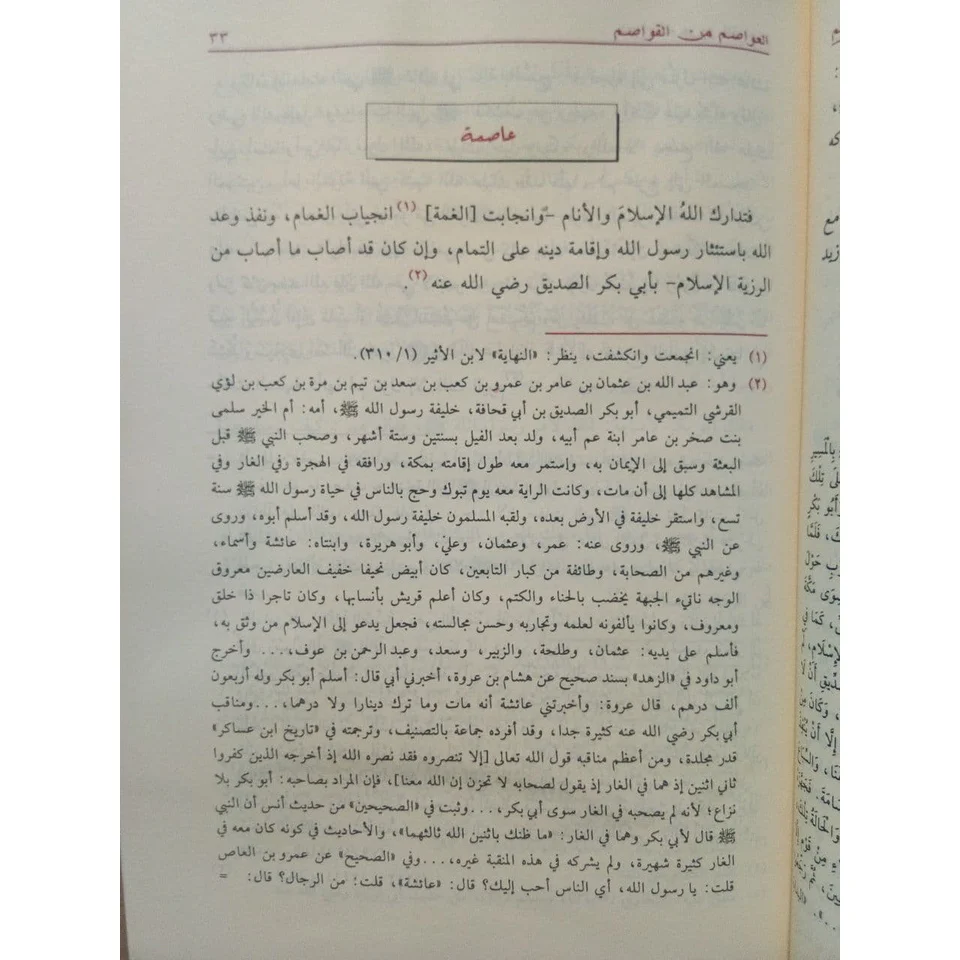 العواصم من القواصم ٣٣
عاصمة
فتدارك اللهُ الإسلامَ والأنام -وانجابت [الغمة] (١) انجياب الغمام، ونفذ وعد
الله باستئثار رسول الله وإقامة دينه على التمام، وإن كان قد أصاب ما أصاب من
الرزية الإسلام- بأبي بكر الصديق رضي الله عنه (٢).
(١) يعني: انجمعت وانكشفت، ينظر: «النهاية» لابن الأثير (١/ ٣١٠).
(٢) وهو: عبد الله بن عثمان بن عامر بن عمرو بن كعب بن سعد بن تيم بن مرة بن كعب بن لؤي
القرشي التميمي، أبو بكر الصديق بن أبي قحافة، خليفة رسول الله ﷺ، أمه: أم الخير سلمى
بنت صخر بن عامر ابنة عم أبيه، ولد بعد الفيل بسنتين وستة أشهر، وصحب النبي ﷺ قبل
البعثة وسبق إلى الإيمان به، واستمر معه طول إقامته بمكة، ورافقه في الهجرة وفي الغار وفي
المشاهد كلها إلى أن مات، وكانت الراية معه يوم تبوك وحج بالناس في حياة رسول الله ﷺ سنة
تسع، واستقر خليفة في الأرض بعده، ولقبه المسلمون خليفة رسول الله، وقد أسلم أبوه، وروى
عن النبي ﷺ، وروى عنه: عمر، وعثمان، وعلي، وأبو هريرة، وابنتاه: عائشة وأسماء،
وغيرهم من الصحابة، وطائفة من كبار التابعين، كان أبيض نحيفا خفيف العارضين معروق
الوجه ناتيء الجبهة يخضب بالحناء والكتم، وكان أعلم قريش بأنسابها، وكان تاجرا ذا خلق
ومعروف، وكانوا يألفونه لعلمه وتجاربه وحسن مجالسته، فجعل يدعو إلى الإسلام من وثق به،
فأسلم على يديه: عثمان، وطلحة، والزبير، وسعد، وعبد الرحمن بن عوف،... وأخرج
أبو داود في «الزهد» بسند صحيح عن هشام بن عروة، أخبرني أبي قال: أسلم أبو بكر وله أربعون
ألف درهم، قال عروة: وأخبرتني عائشة أنه مات وما ترك دينارا ولا درهما،...ومناقب
أبي بكر رضي الله عنه كثيرة جدا، وقد أفرده جماعة بالتصنيف، وترجمته في «تاريخ ابن عساكر»
قدر مجلدة، ومن أعظم مناقبه قول الله تعالى [إلا تنصروه فقد نصره الله إذ أخرجه الذين كفروا
ثاني اثنين إذ هما في الغار إذ يقول لصحابه لا تحزن إن الله معنا]، فإن المراد بصاحبه: أبو بكر بلا
نزاع؛ لأنه لم يصحبه في الغار سوى أبي بكر،...وثبت في «الصحيحين» من حديث أنس أن النبي
ﷺ قال لأبي بكر وهما في الغار: «ما ظنك باثنين الله ثالثهما»، والأحاديث في كونه كان معه في
الغار كثيرة شهيرة، ولم يشركه في هذه المنقبة غيره،...وفي «الصحيح» عن عمرو بن العاص
قلت: يا رسول الله، أي الناس أحب إليك؟ قال: «عائشة»، قلت؛ من الرجال؟ قال: =